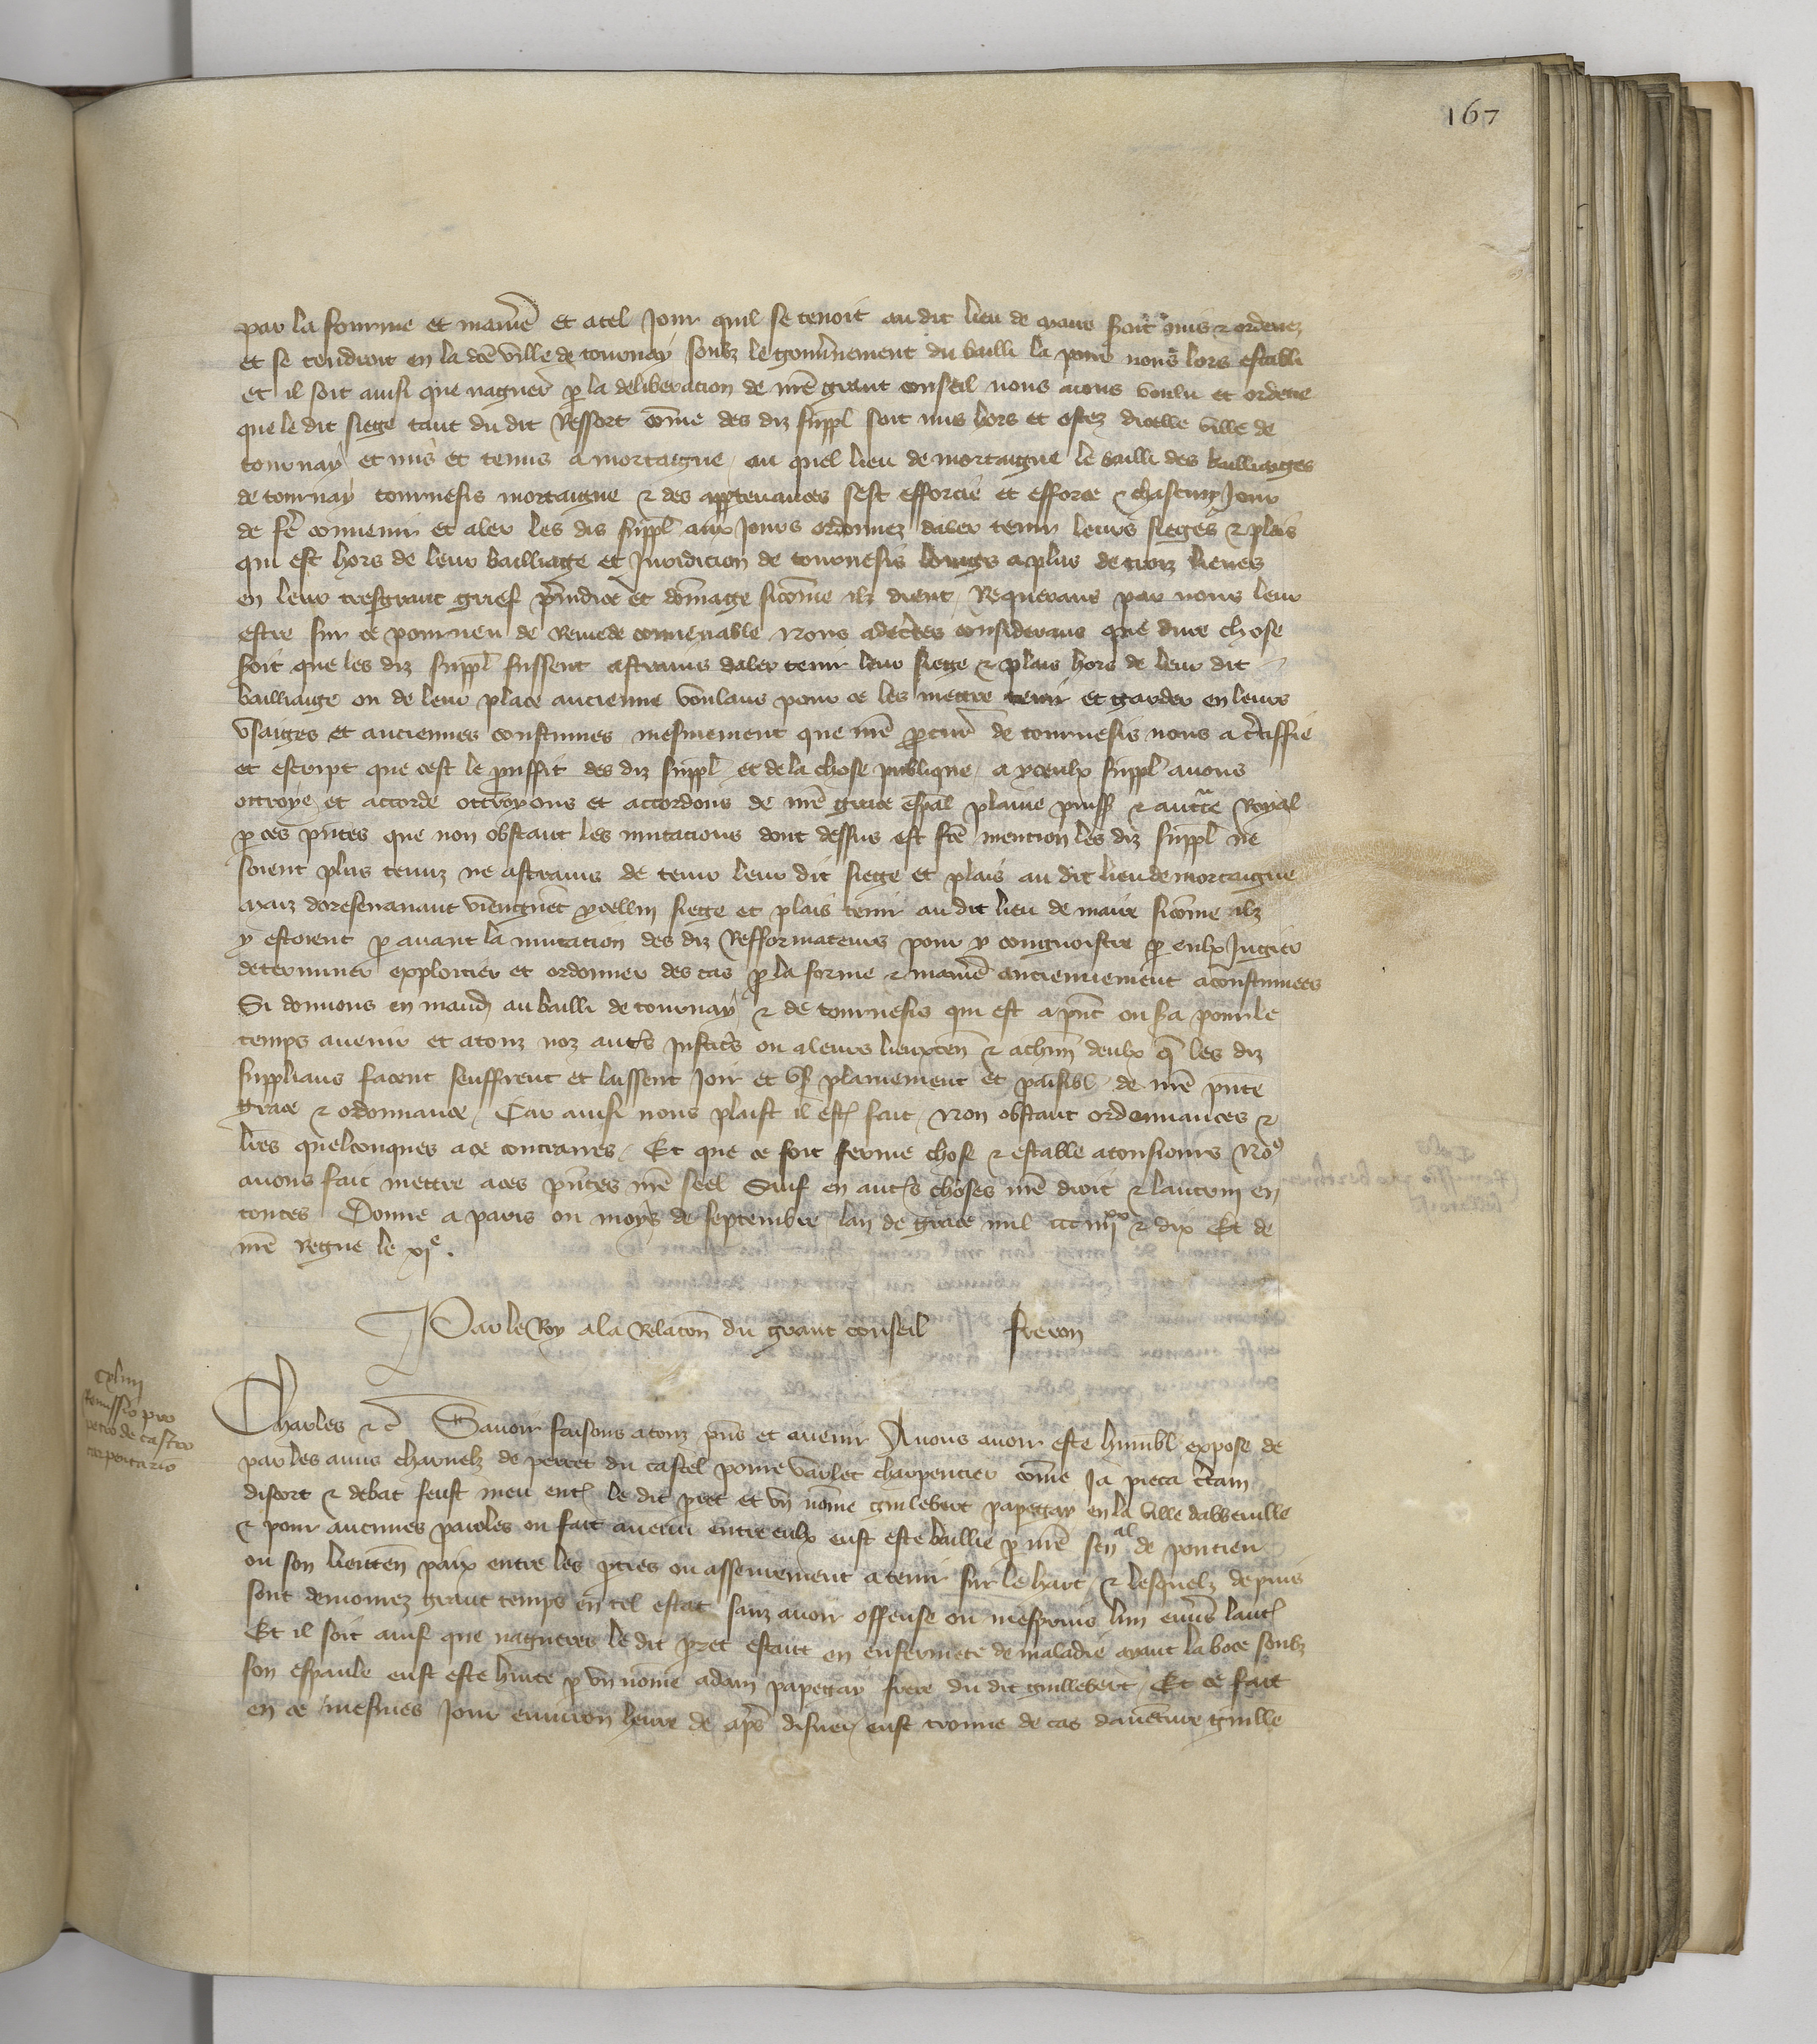 167
par la fourme et manie᷑ et a tel jour quil se tenoit au dit lieu de maire soit mis & ordenez
et se tendroit en la dc̃e ville de tournay soubz le gouv̾nement du bailli la pour nous lors establi
et il soit ainsi que nagueŕ ꝑ la deliberacion de nr̃e grant conseil nous aions voulu et ordene
que le dit siege tant du dit Ressort com̃e des diz suppl̃ soit mis hors et ostez dicelle ville de
tournay et mis et tenus a mortaigne / au quel lieu de mortaigne le bailli des bailliaiges
de tournay tournesis mortaigne & des appartenances sest efforcie et efforce chascun jour
de fe᷑ convenir et aler les dis suppl̃ aux jours ordonnez daler tenir leurs sieges & plais
qui est hors de leur bailliage et Juridicion de tournesis loings a plus de trois lieues
en leur tresgrant grief p̃iudice et dom̃age sicom̃e ilz dient / Requerans par nous leur
estre sur ce pourueu de Remede conuenable Nous adec̃tes considerans que dure chose
soit que les diz suppl̃ fussent astrains daler tenir leur siege & plais hors de leur dit
bailliaige ou de leur place ancienne voulans pour ce les mettre tenir et garder en leurs
vsaiges et anciennes coustumes mesmement que nr̃e ꝓcur̃ de tournesis nous a c̃tiffie
et escript que cest le prouffit des diz suppl̃ et de la chose publique / a yceulx suppl̃ auons
ottroye et accorde ottroyons et accordons de nr̃e grace esp̃al plaine puiss̃ & auct̃te Royal
ꝑ ces p̃ntes que non obstant les mutacions dont dessus est fc̃e mencion les diz suppl̃ ne
soient plus tenuz ne astrains de tenir leur dit siege et plais au dit lieu de mortaigne
maiz doresenauant viengnẽt ycellui siege et plais tenir au dit lieu de maire sicom̃e ilz
y estoient ꝑ auant la mutacion des diz Refformateurs pour y congnoistre ꝑ eulx Jugier
determiner exploictier et ordonner des cas ꝑ la forme & manie᷑ anciennement acoustumees
Si donnons en mand̃ au bailli de tournay & de tournesis qui est a p̃nt ou s̃a pour le
temps auenir et a touz noz aut̃s justic̃s ou a leurs lieuxten̄ & a chũn deulx q̃ les diz
supplians facent seuffrent et laissent joir et vs̃ plainement et paisibl̃ de nr̃e p̃nte
grace & ordonnance / Car ainsi nous plaist il est̃ fait / Non obstant ordennances &
lr̃es quelconques a ce contraires / Et que ce soit ferme chose & estable a tousiours Noꝰ
auons fait mettre a ces p̃ntes nr̃e seel Sauf en aut̃s choses nr̃e droit & lautrui en
toutes Donne a paris ou moys de septembre lan de grace mil CCC iiiixx & dix Et de
nr̃e Regne le xie.
Par le Roy a la Relacon̄ du grant conseil freron
Cxliiii
Remissio pro
petro de castro
carpentario
Charles &c̃ Sauoir faisons a touz p̃ns et auenir A nous auoir este humbl̃ expose de
par les amis charnelz de perret du castel poure varlet charpentier com̃e ja pieca c̃tain
discort & debat feust meu ent̃ le dit p̃ret et vn nõme guillebert papegay en la ville dabbeuille
& pour aucunes paroles ou fait auenu entre eulx eust este baillie ꝑ nr̃e sen̄al de pontieu
ou son lieuten̄ paix entre les p̃ties ou asseurement a tenir sur le hart / & lesquelz depuis
sont demourez grant temps en tel estat sanz auoir offense ou mespris lun enu̾s laut̃
Et il soit ainsi que nagueres le dit p̃ret estant en enfermete de maladie ayant la boce soubz
son espaule eust este hurte ꝑ vn nõme adam papegay frere du dit guillebert / Et ce fait
en ce mesmes jour enuiron heure de ap̃s disner / eust trouue de cas dauenture guille